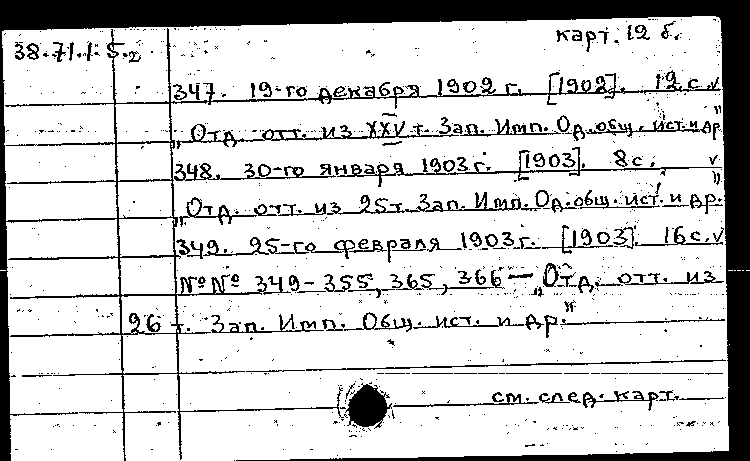 карт. 12 б.
38.71.1: 5.2
347. 19-го декабря 1902 г. [1902]. 12 с. v
„Отд. отт. из XXV т. Зап. Имп. Од. общ. ист. и др."
348. 30-го января 1903 г. [1903]. 8 с. v
„Отд. отт. из 25 т. Зап. Имп. Од. общ. ист. и др."
349. 25-го февраля 1903 г. [1903]. 16 с. v
№№ 349-355, 365, 366 — „Отд. отт. из
26 т. Зап. Имп. Общ. ист. и др."
см. след. карт.